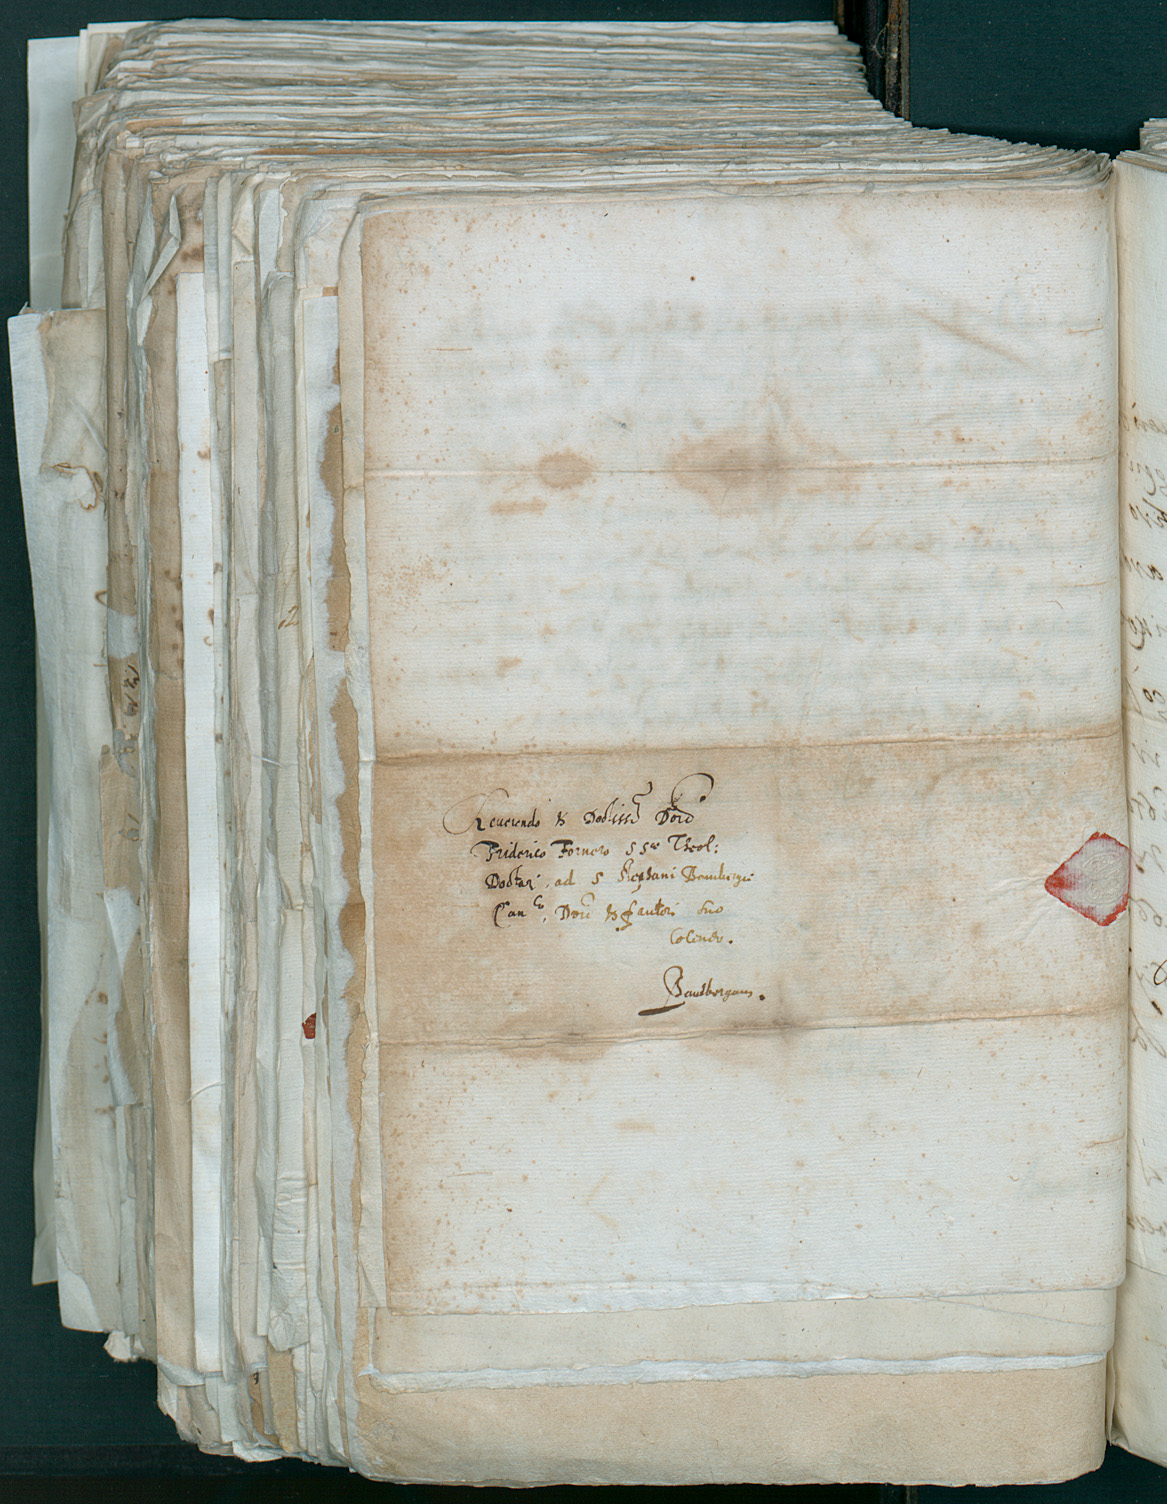 Reuerendo & Doctiss° Dōno
Friderico Fornero SSae Theol:
Doctori, ad S Stephani Bambergae
Canco, Dōno & fautori suo
Colendo.
Bambergam.